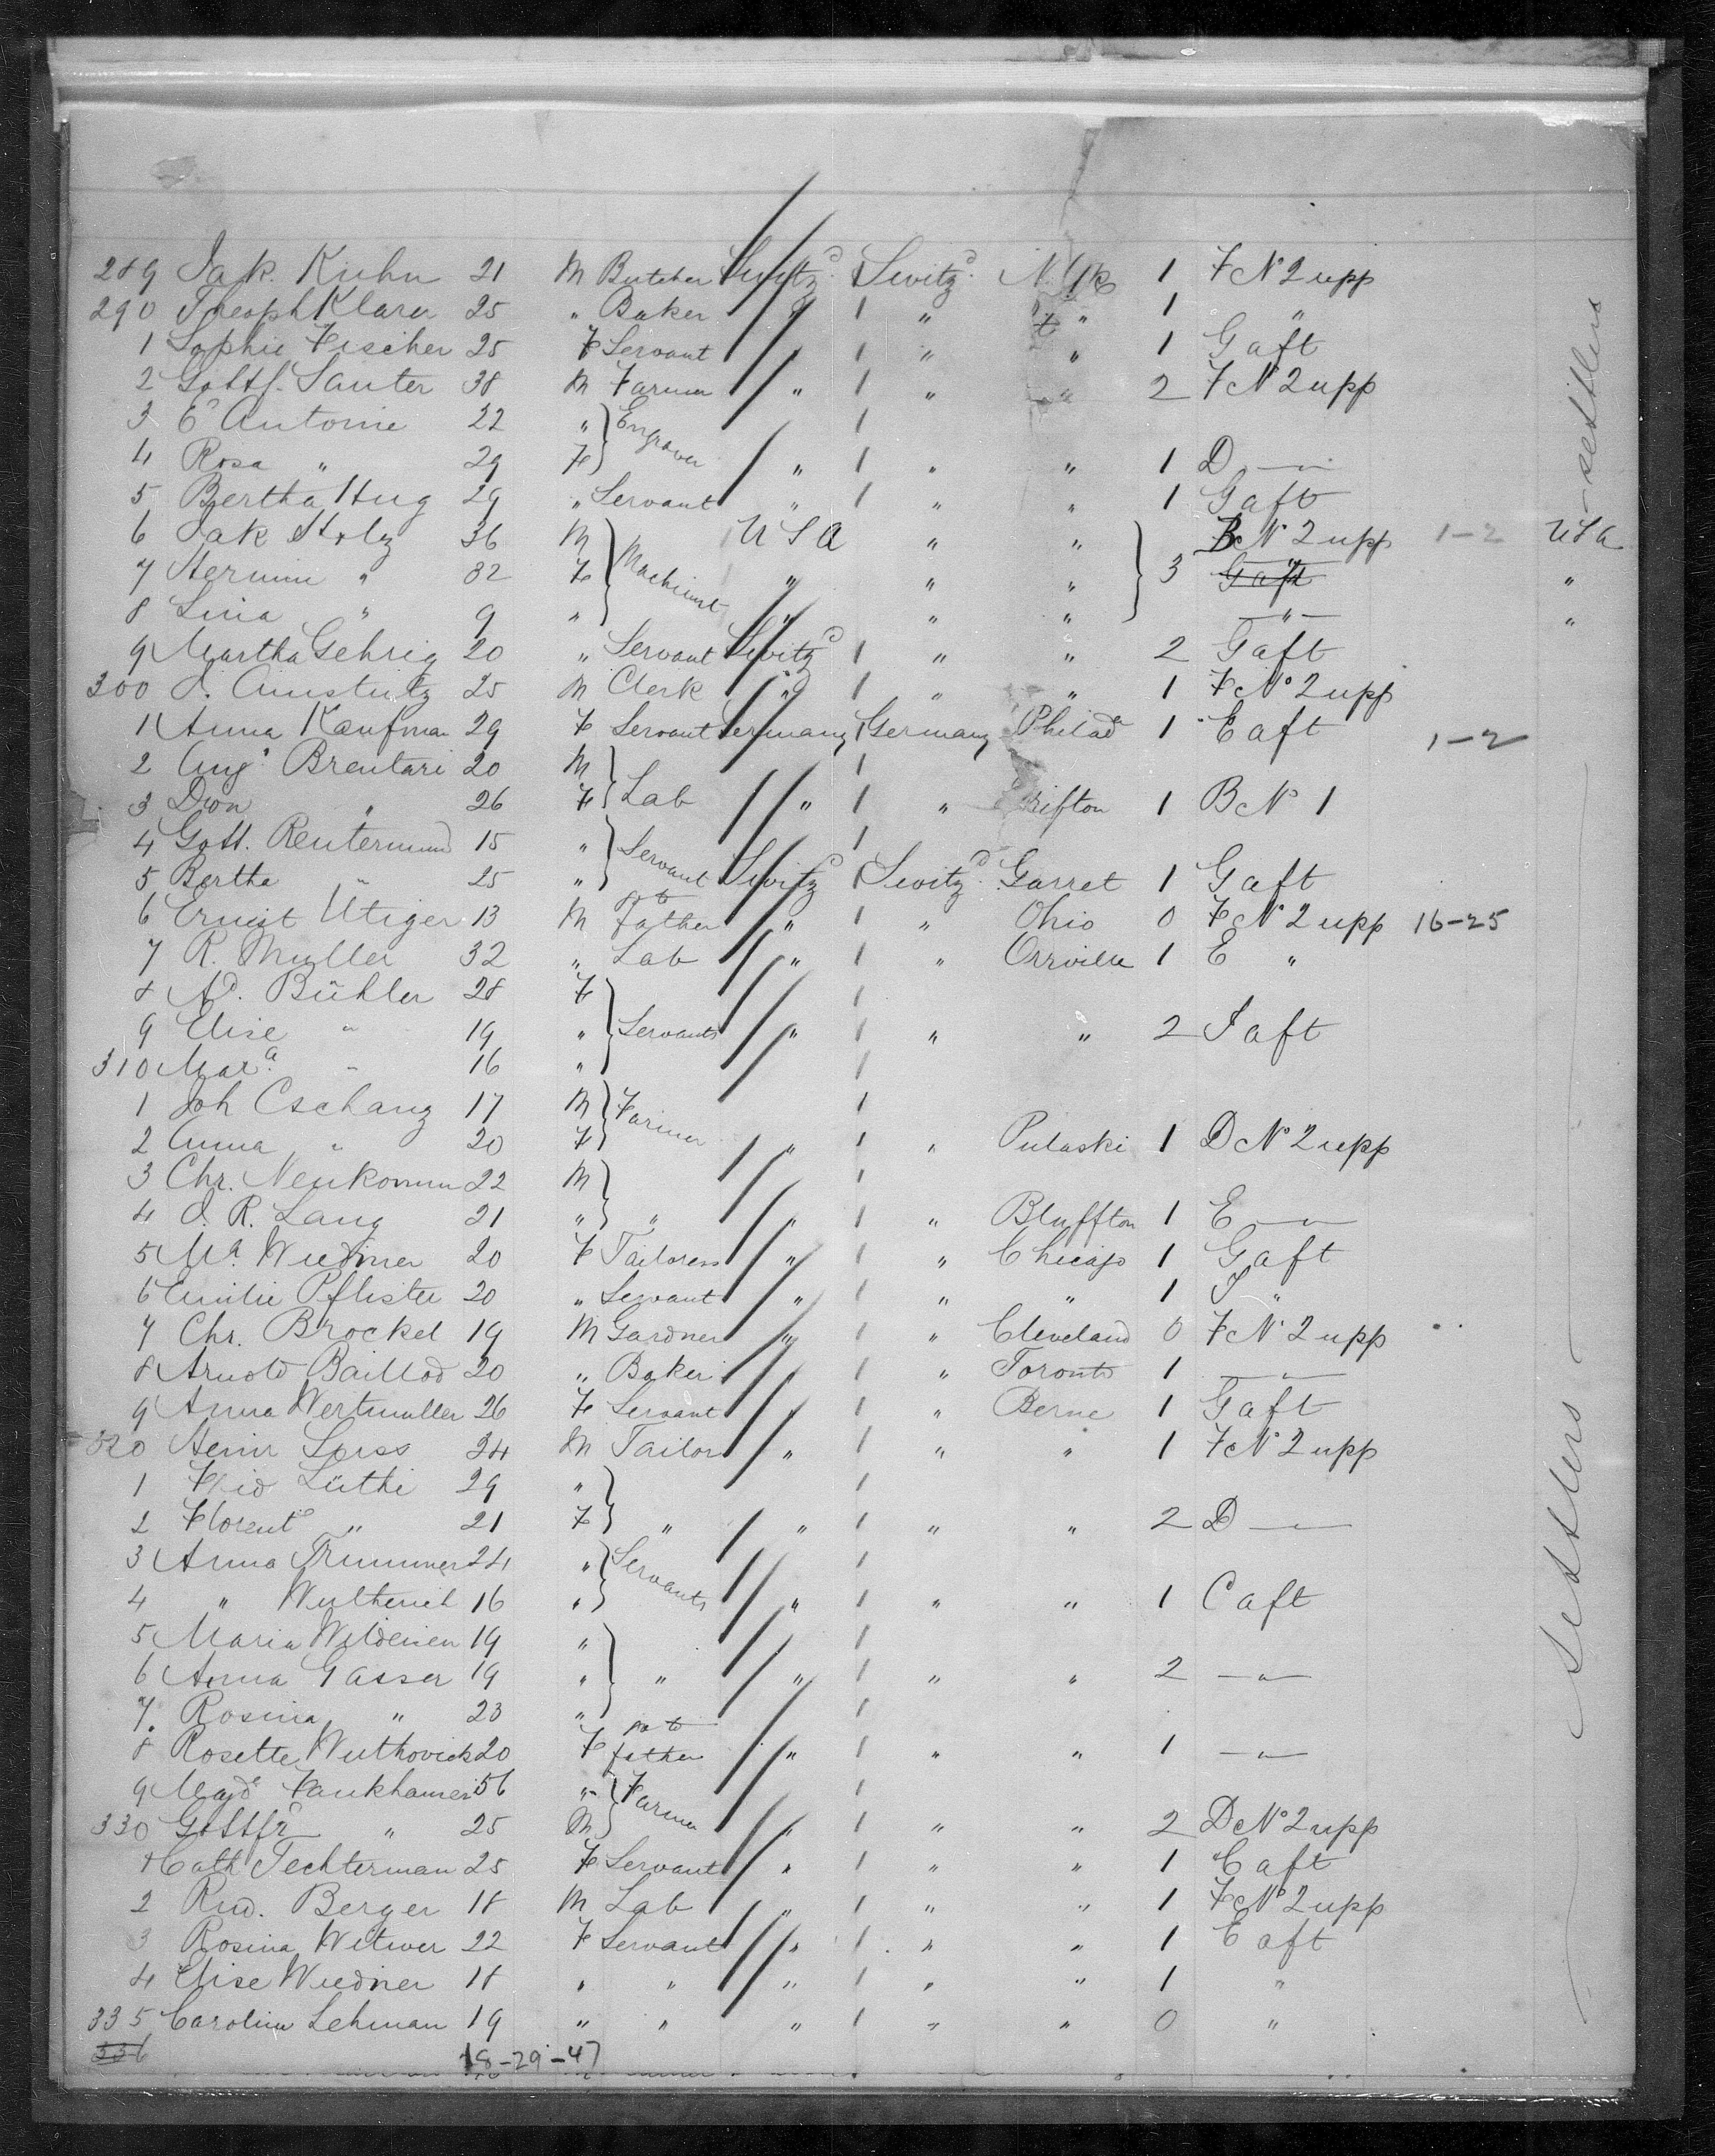 289 Jak. Kuhn 21 M Butcher Switzd. Switzd. N. Yk 1 F No 2 upp
290 Theoph Klarer 25 " Baker " " " 1 "
1 Sophie Fischer 25 F Servant " " 1 G aft
2 Gottf. Sauter 38 M Farmer " " " 2 F No 2 upp
3 E Antoine 22 " Engraver
4 Rosa " 29 F " " " 1 D —"—
5 Bertha Hug 29 " Servant " " " 1 G aft
6 Jak Stolz 36 M Machinist U S A " " 3 B No 2 upp 1-2 USA
7 Hermin " 32 F " " " G aft "
8 Lina " 9 " " " " —"— "
9 Martha Gehrig 20 " Servant Switzd " " 2 G aft
300 J. Amstutz 25 M Clerk " " " 1 F No 2 upp
1 Anna Kaufman 29 F Servant Germany Germany Philad 1 E aft
1-2
2 Aug. Brentari 20 M Lab
3 Don " 26 F " " 1 B No 1
4 Gott. Reutermund 15 " Servant
5 Bertha " 25 " Switzd Switzd. Garret 1 G aft
6 Ernest Utiger 13 M go to father " " Ohio 0 F No 2 upp 16-25
7 R. Muller 32 " Lab " " Orrville 1 E "
8 Ad. Bühler 28 F
9 Elise " 19 " Servants " " " 2 I aft
310 Mara. " 16 "
1 Joh Cschanz 17 M Farmer
2 Anna " 20 F " " Pulaski 1 D No 2 upp
3 Chr. Neukomm 22 M
4 J. R. Lang 21 " " " " Bluffton 1 E —"—
5 Ma Wiedmer 20 F Tailoress " " Chicago 1 G aft
6 Emilie Pfister 20 " Servant " " " 1 I "
7 Chr. Brockel 19 M Gardner " " Cleveland 0 F No 2 upp
8 Arnold Baillod 20 " Baker " Toronto 1 —"—
9 Anna Wertmuller 26 F Servant " " Berne 1 G aft
320 Heinr Loss 34 M Tailor " " " 1 F No 2 upp
1 Lüthi 29 "
2 Florent " 21 F " " " " 2 D —"—
3 Anna Trummer 24 " Servants
4 " Wutherich 16 " " " " 1 C aft
5 Maria 19 "
6 Anna Gasser 19 " " " " " 2 —"—
7 Rosina " 23 "
8 Rosette 20 F go to father " " " 1 —"—
9 Magd 56 " Farmer
330 Gottfr " 25 M " " " 2 D No 2 upp
1 Cath Techterman 25 F Servant " " " 1 C aft
2 Rud. Berger 18 M Lab " " " 1 F No 2 upp
3 Rosina Witwer 22 F Servant " " " 1 E aft
4 Elise Wiedner 18 " " " " " 1 "
335 Carolina Lehman 19 " " " " " 0 "
336
18-29-47
settlers
settlers